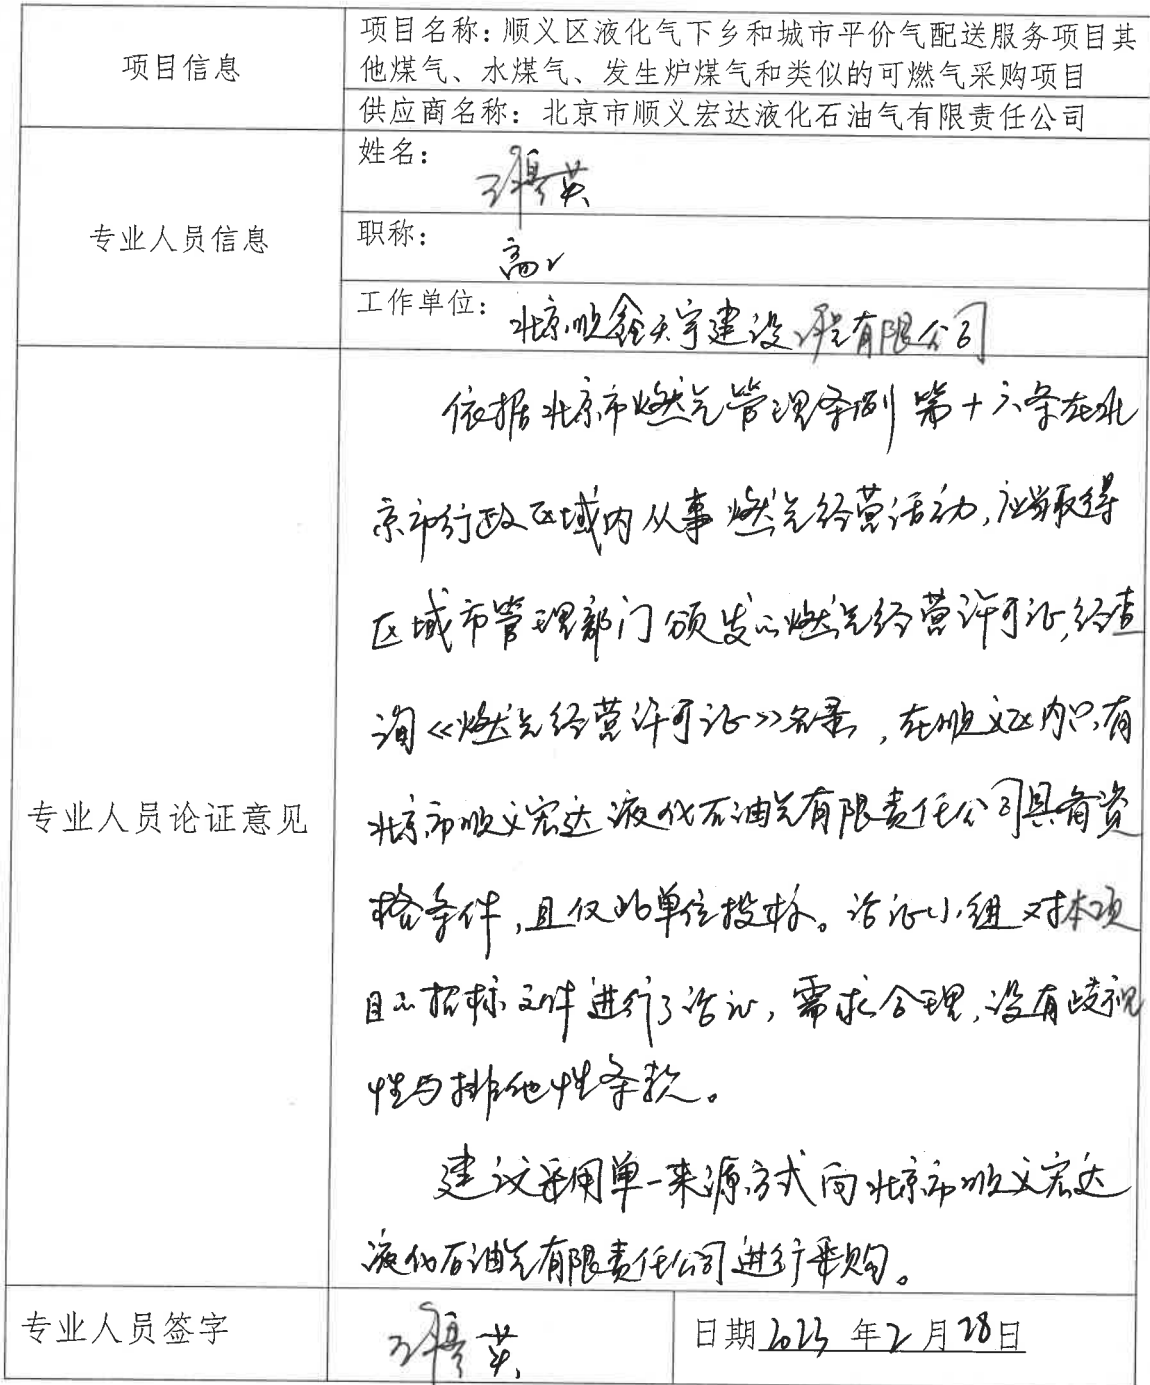 项目信息
项目名称：顺义区液化气下乡和城市平价气配送服务项目其
他煤气、水煤气、发生炉煤气和类似的可燃气采购项目
供应商名称：北京市顺义宏达液化石油气有限责任公司
专业人员信息
姓名：
职称：
高工
工作单位：
北京顺鑫天宇建设工程有限公司
专业人员论证意见
依据北京市燃气管理条例第十六条在北
京市行政区域内从事燃气经营活动，应当取得
区城市管理部门颁发的燃气经营许可证，经查
询《燃气经营许可证》名录，在顺义区内只有
北京市顺义宏达液化石油气有限责任公司具备资
格条件，且仅此单位投标。论证小组对本项
目的招标文件进行了论证，需求合理，没有歧视
性与排他性条款。
建议采用单一来源方式向北京市顺义宏达
液化石油气有限责任公司进行采购。
专业人员签字
日期2023年2月28日